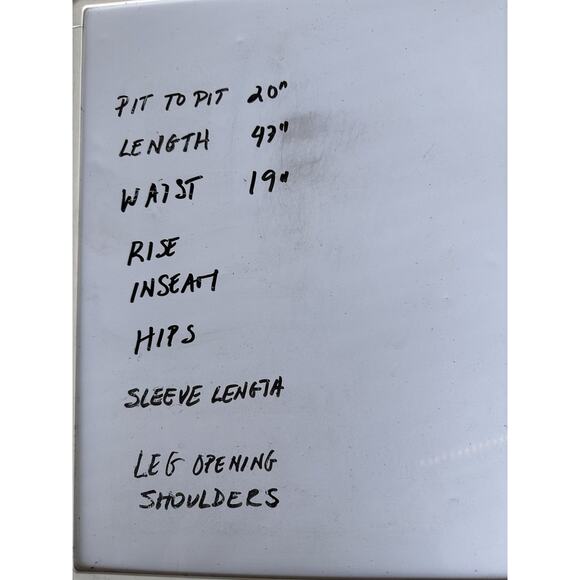 PIT TO PIT 20"
LENGTH 47"
WAIST 19"
RISE
INSEAM
HIPS
SLEEVE LENGTH
LEG OPENING
SHOULDERS